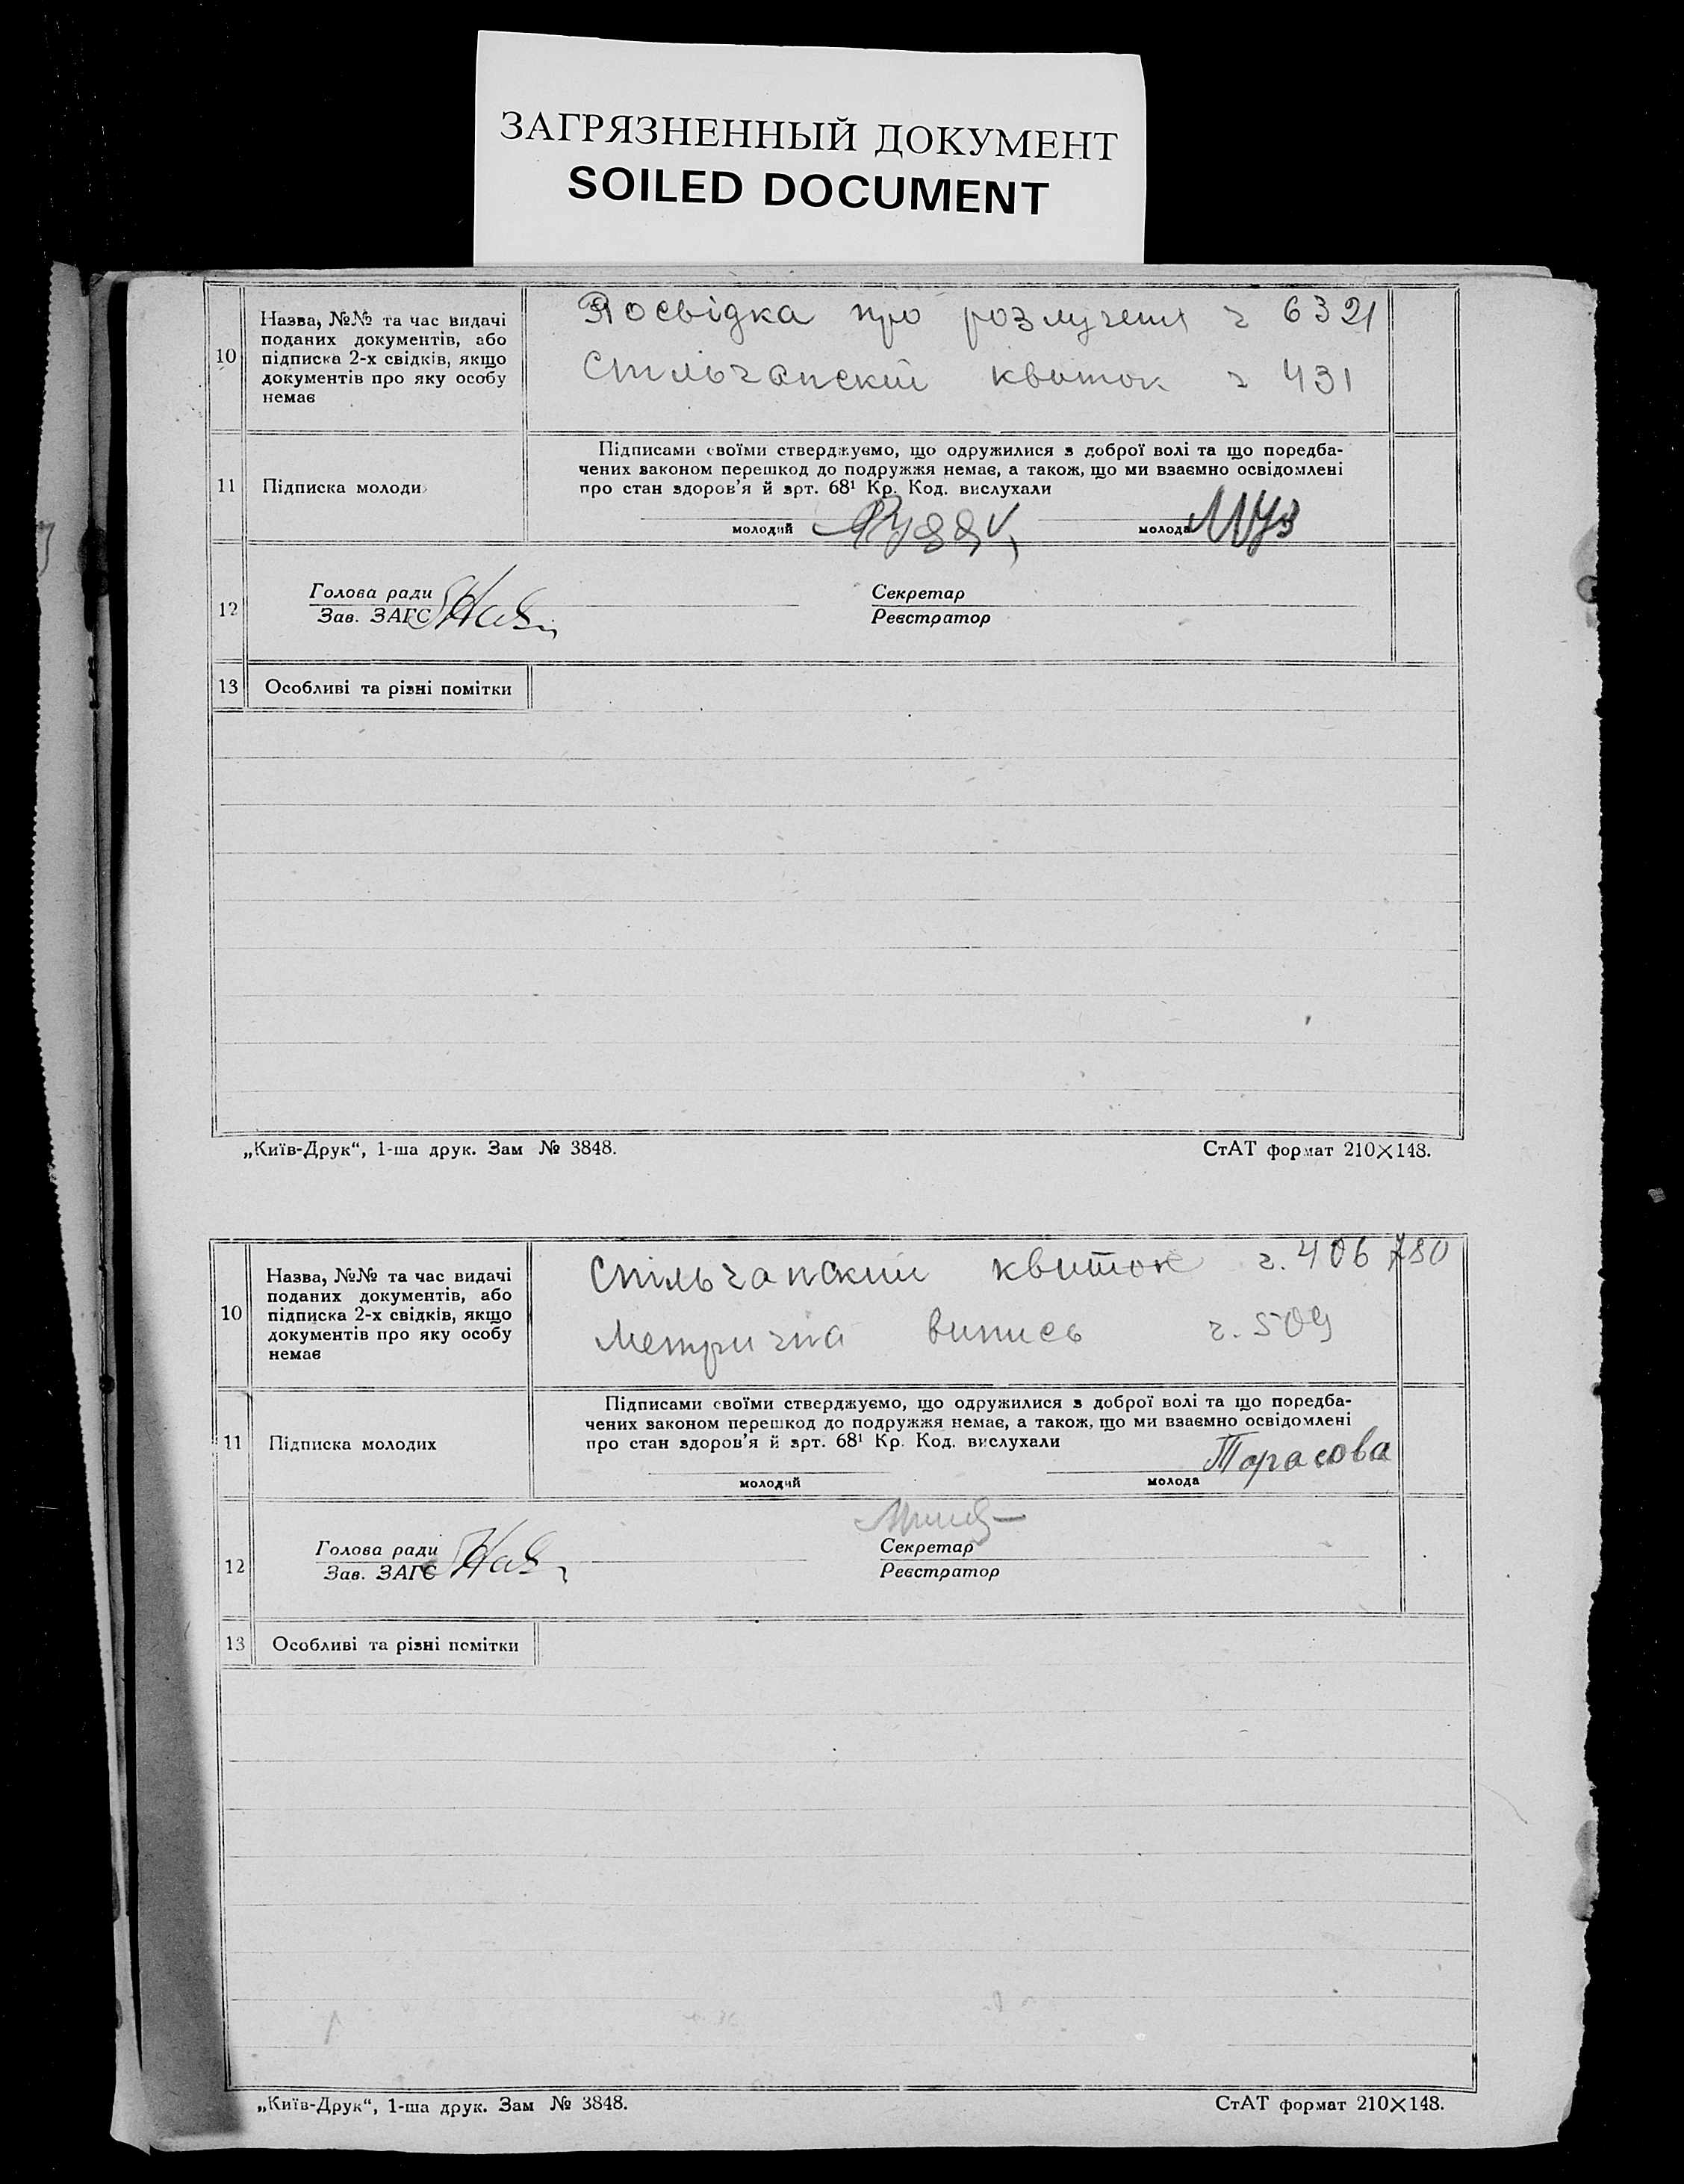 ЗАГРЯЗНЕННЫЙ ДОКУМЕНТ
SOILED DOCUMENT
10
Назва, №№ та час видачі
поданих документів, або
підписка 2-х свідків, якщо
документів про яку особу
немає
Посвідка про розлучення ч 6321
Спільчанский квиток ч 431
11
Підписка молоди
Підписами своїми стверджуємо, що одружилися з доброї волі та що поредба-
чених законом перешкод до подружжя немає, а також, що ми взаємно освідомлені
про стан здоров'я й арт. 68¹ Кр. Код. вислухали
молодий
молода
12
Голова ради
Зав. ЗАГС
Секретар
Реєстратор
13
Особливі та різні помітки
„Київ-Друк“, 1-ша друк. Зам № 3848.
СтАТ формат 210×148.
10
Назва, №№ та час видачі
поданих документів, або
підписка 2-х свідків, якщо
документів про яку особу
немає
Спільчанский квиток ч. 406780
Метрична випись ч. 509
11
Підписка молодих
Підписами своїми стверджуємо, що одружилися з доброї волі та що поредба-
чених законом перешкод до подружжя немає, а також, що ми взаємно освідомлені
про стан здоров'я й арт. 68¹ Кр. Код. вислухали
молодий
молода Тарасова
12
Голова ради
Зав. ЗАГС
Секретар
Реєстратор
13
Особливі та різні помітки
„Київ-Друк“, 1-ша друк. Зам № 3848.
СтАТ формат 210×148.